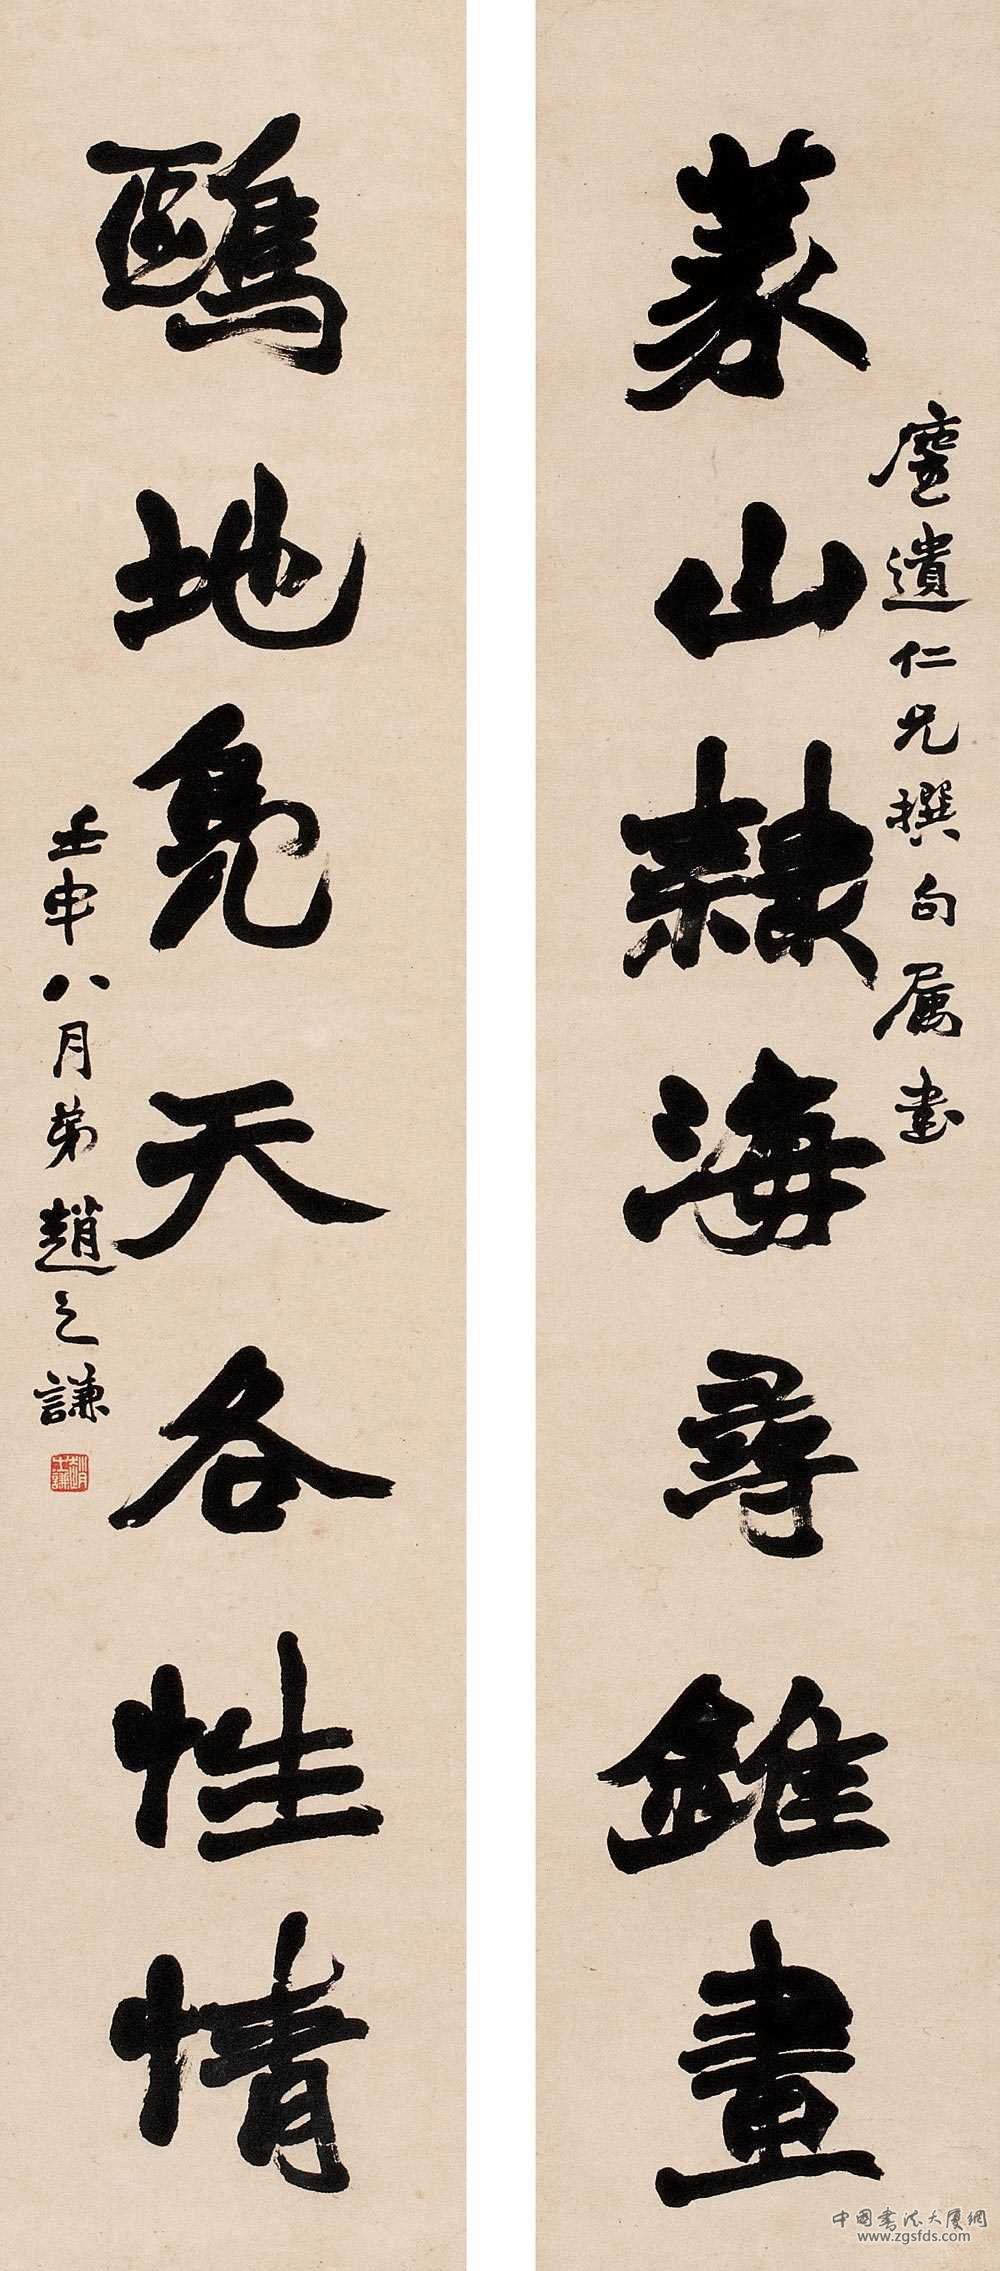 篆山隸海尋錐畫
遺仁兄撰句属書
鷗地鳧天各性情
壬申八月弟趙之謙
中國書法大厦網
www.zgsfds.com